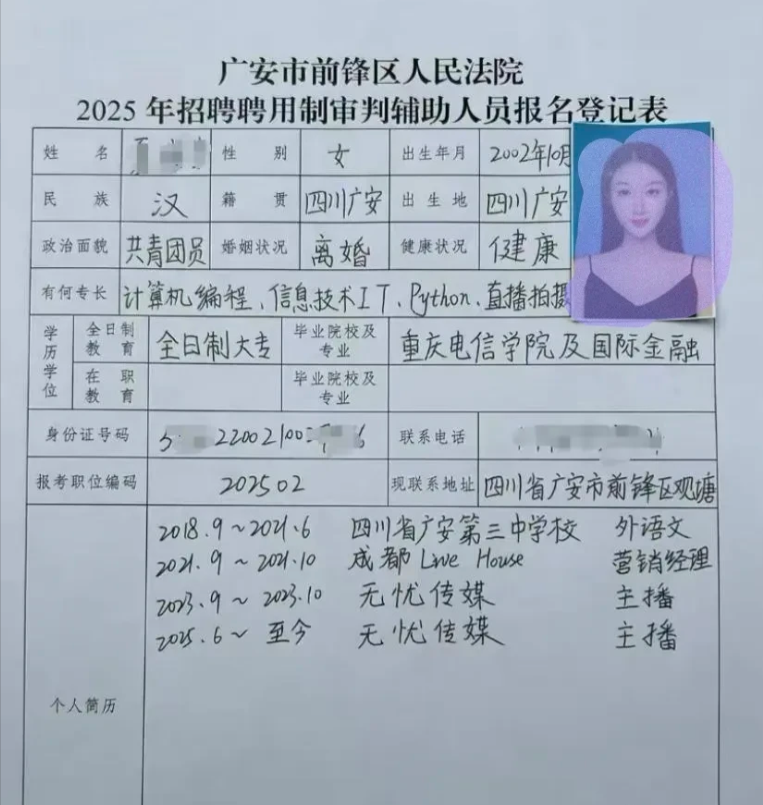 广安市前锋区人民法院
2025年招聘聘用制审判辅助人员报名登记表
姓 名 性 别 女 出生年月 2002年10月
民 族 汉 籍 贯 四川广安 出 生 地 四川广安
政治面貌 共青团员 婚姻状况 离婚 健康状况 健康
有何专长 计算机编程、信息技术IT、Python、直播拍摄
学历学位 全日制教育 全日制大专 毕业院校及专业 重庆电信学院及国际金融
在职教育 毕业院校及专业
身份证号码 联系电话
报考职位编码 202502 现联系地址 四川省广安市前锋区观塘
2018.9~2021.6 四川省广安第三中学校 外语文
2021.9~2021.10 成都Live House 营销经理
2023.9~2023.10 无忧传媒 主播
2025.6~至今 无忧传媒 主播
个人简历